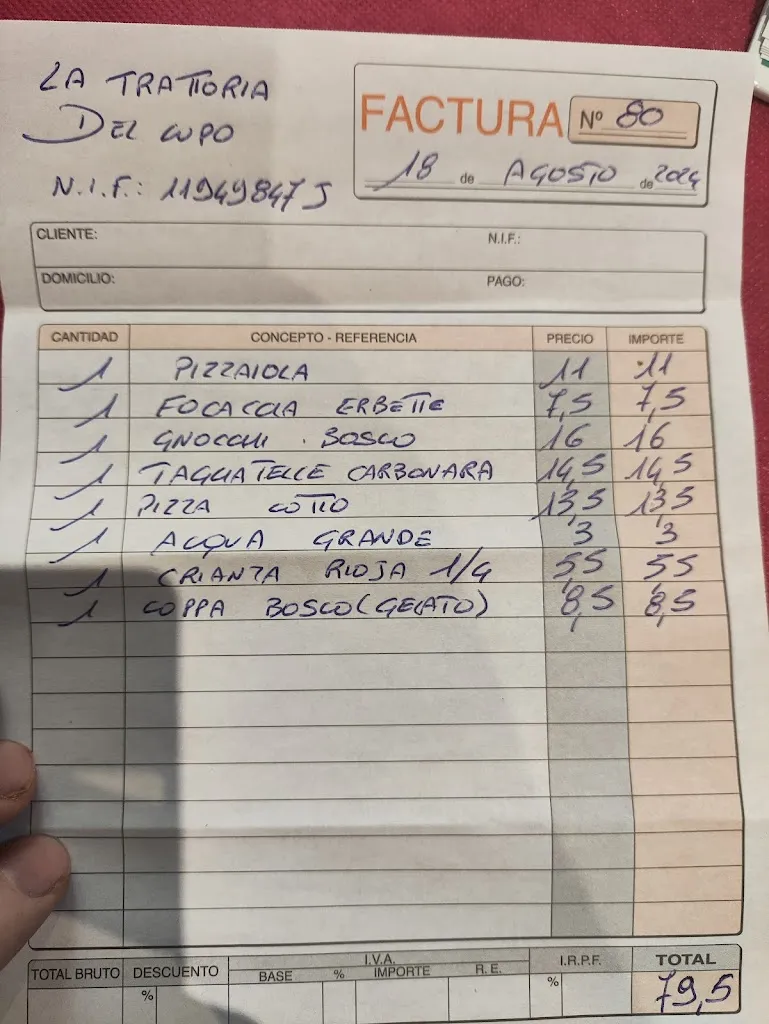 LA TRATTORIA
DEL LUPO
N.I.F.: 11949847J
FACTURA Nº 80
18 de AGOSTO de 2024
CLIENTE: N.I.F.:
DOMICILIO: PAGO:
CANTIDAD CONCEPTO - REFERENCIA PRECIO IMPORTE
1 PIZZAIOLA 11 11
1 FOCACCIA ERBETTE 7,5 7,5
1 GNOCCHI BOSCO 16 16
1 TAGLIATELLE CARBONARA 14,5 14,5
1 PIZZA COTTO 13,5 13,5
1 ACQUA GRANDE 3 3
1 CRIANZA RIOJA 1/4 5,5 5,5
1 COPPA BOSCO (GELATO) 8,5 8,5
TOTAL BRUTO DESCUENTO I.V.A. I.R.P.F. TOTAL
BASE % IMPORTE R.E.
% % 79,5